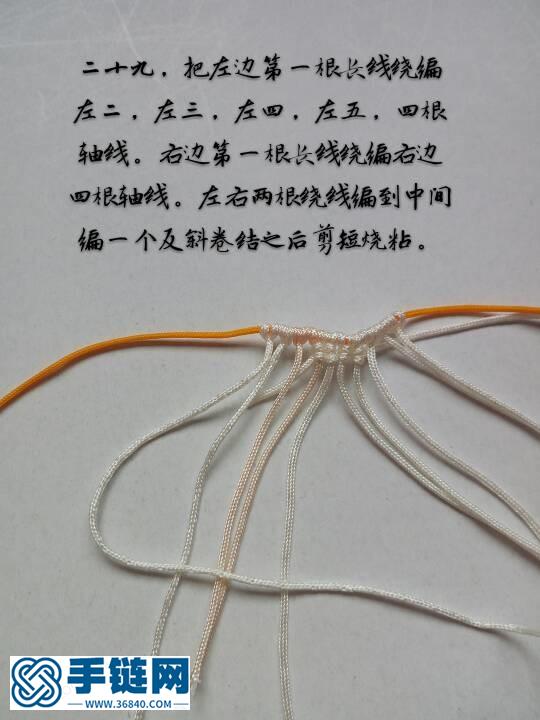 二十九，把左边第一根长线绕编
左二，左三，左四，左五，四根
轴线。右边第一根长线绕编右边
四根轴线。左右两根绕线编到中间
编一个反斜卷结之后剪短烧粘。
手链网
WWW.36840.COM